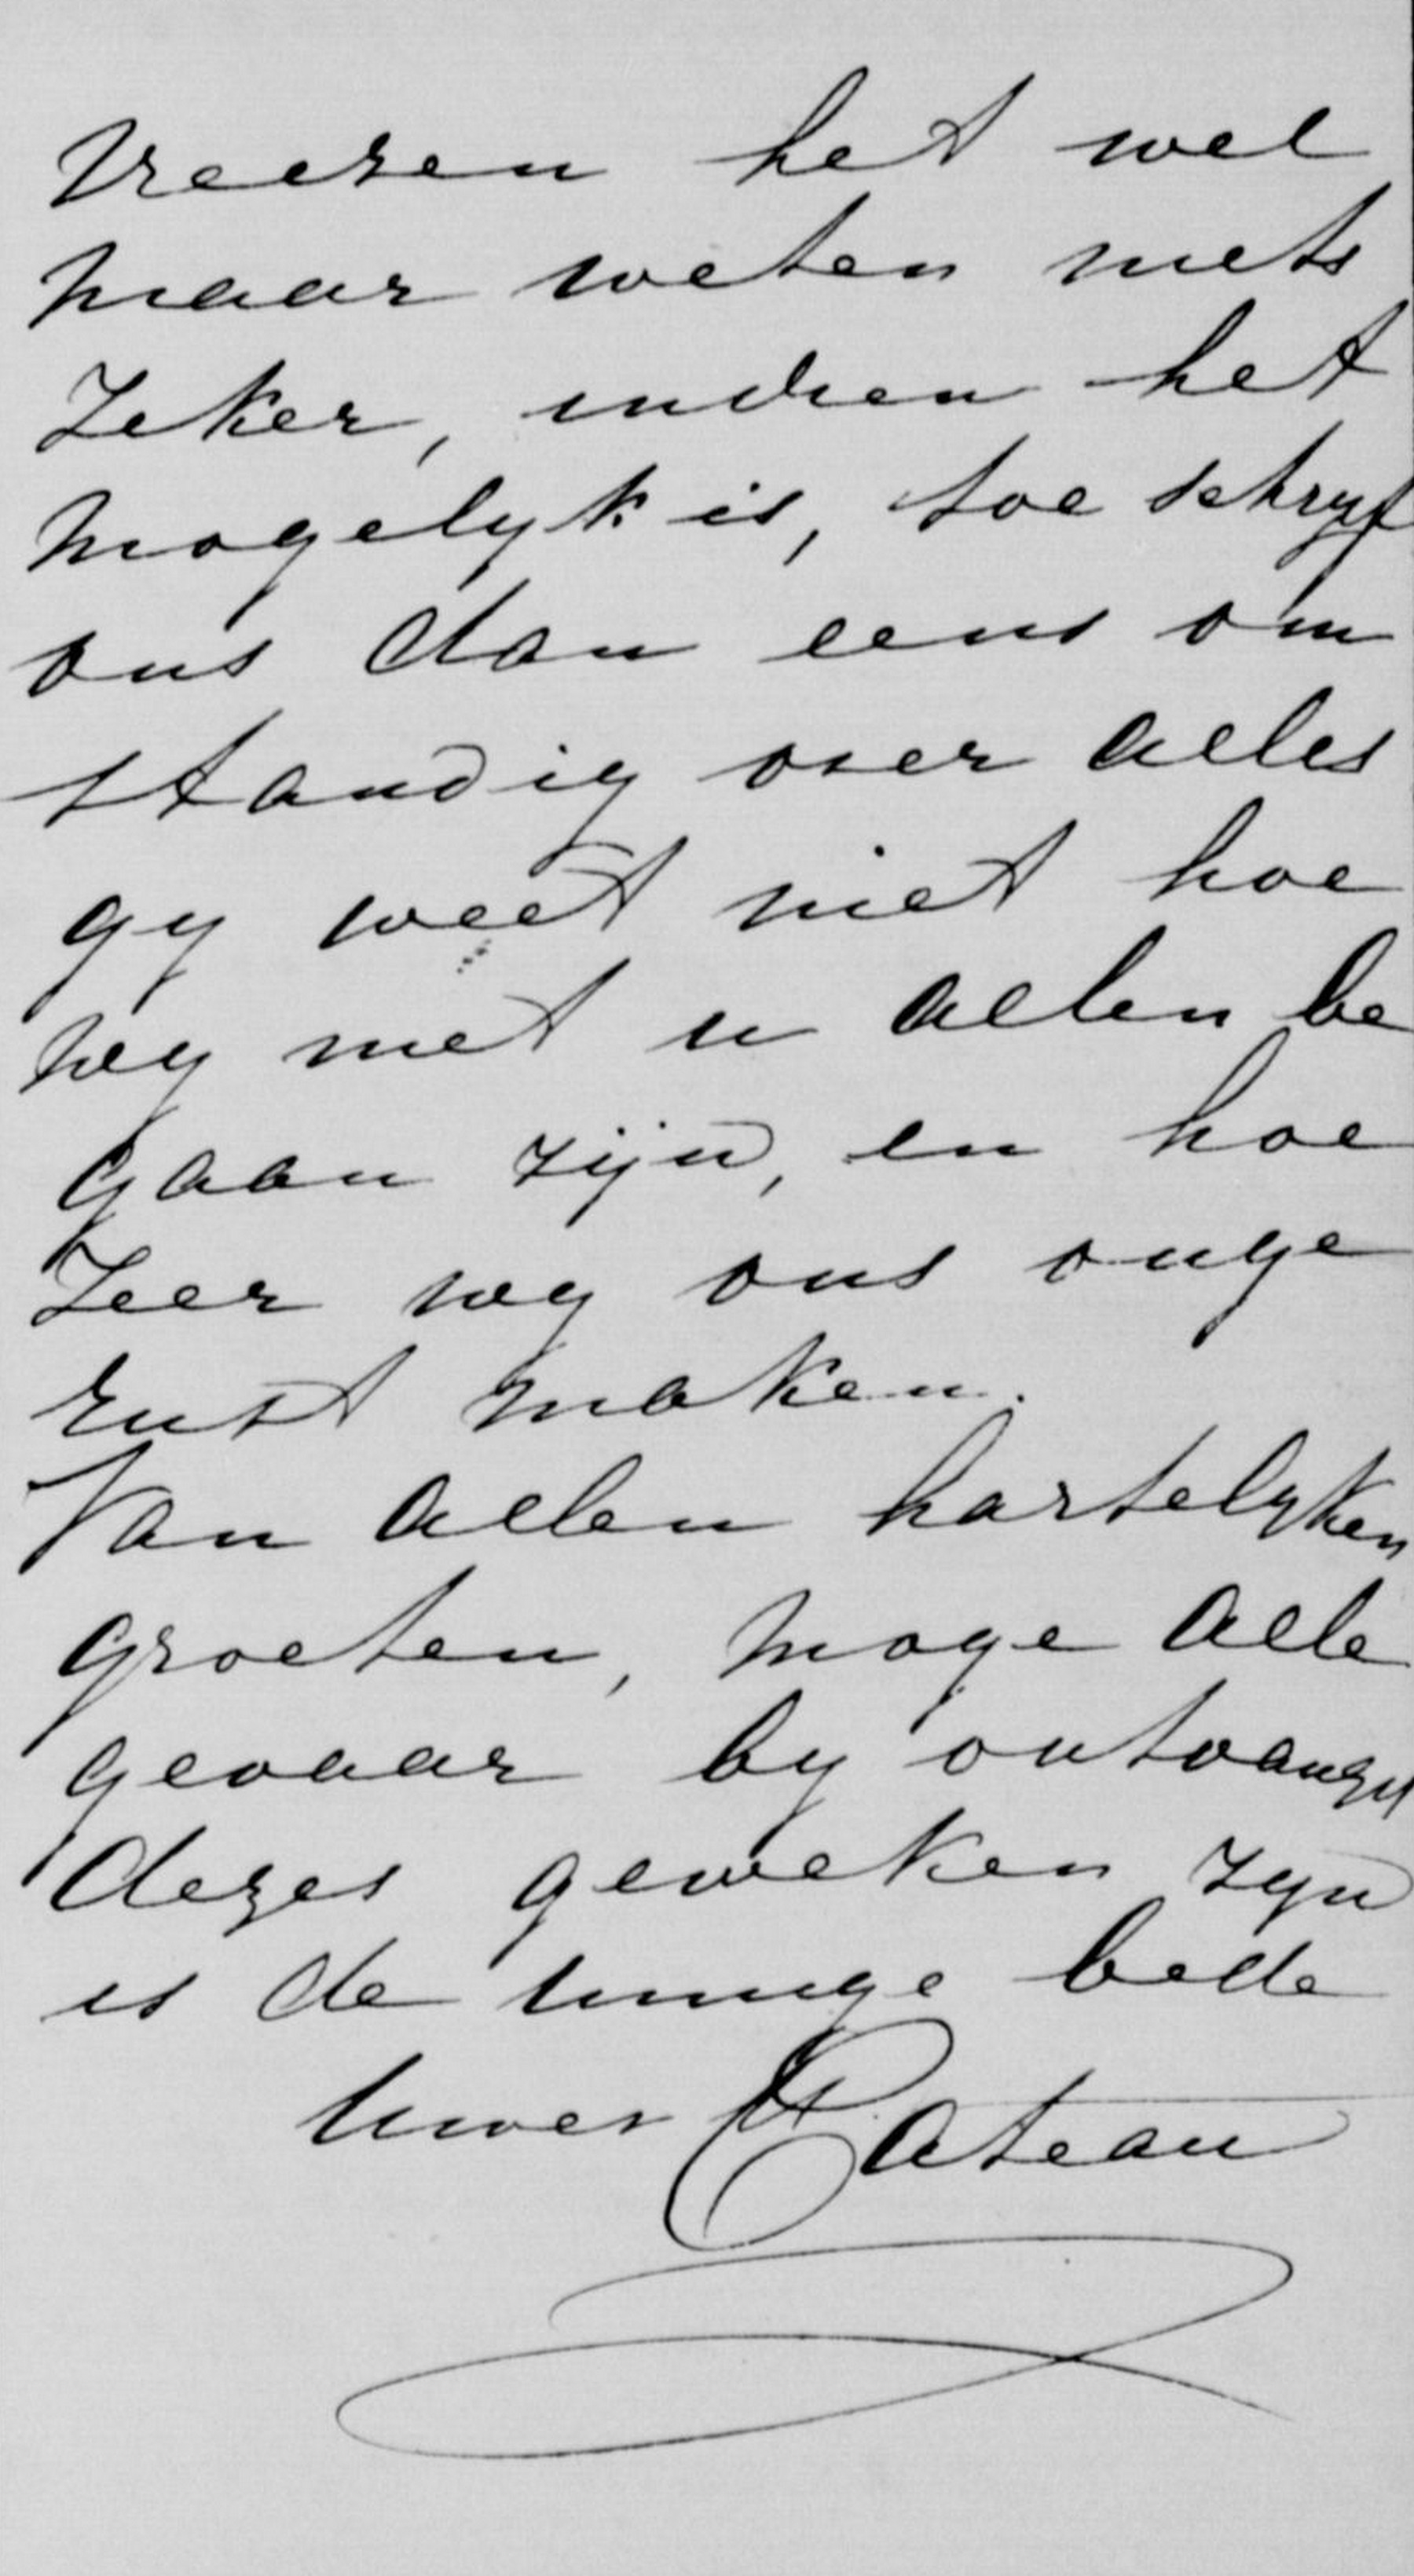 vreezen het wel
maar weten niets
Zeker, indien het
mogelyk is, toe schryf
ons dan eens om
standig over alles
gy weet niet hoe
wy met u allen be
gaan zijn, en hoe
Zeer wy ons onge
rust maken.
Van allen hartelyken
groeten, moge alle
gevaar by ontvangst
dezes geweken zyn
is de innige bede
Uwer Cateau